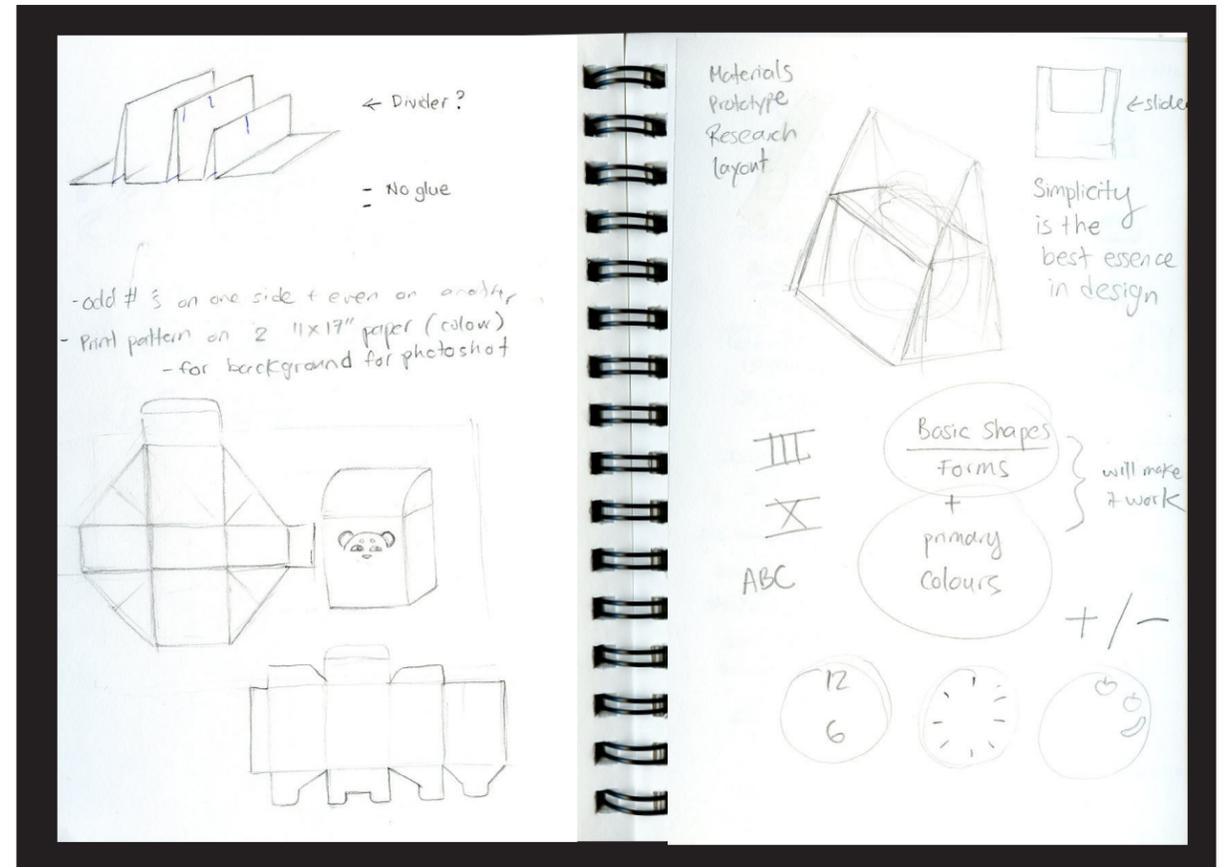 ← Divider?
- No glue
-
- odd #'s on one side + even on another
- Print pattern on 2 11x17" paper (colour)
- for background for photoshot
Materials
Prototype
Research
layout
← slide
Simplicity
is the
best essence
in design
III
X
ABC
Basic Shapes
Forms
+
primary
colours
will make
it work
+/-
12
6